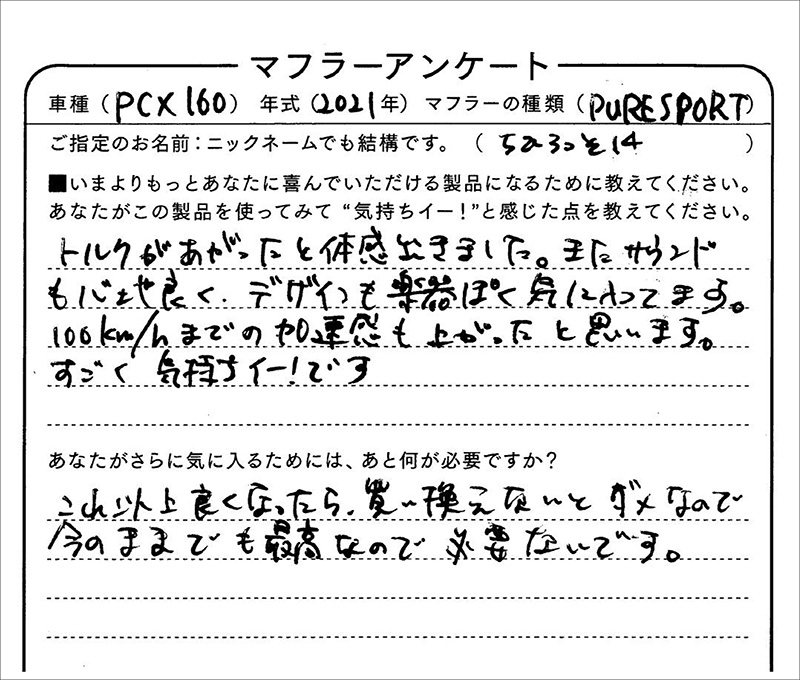 マフラーアンケート
車種（PCX160） 年式（2021年） マフラーの種類（PURESPORT）
ご指定のお名前：ニックネームでも結構です。（ ちひろっと14 ）
■いまよりもっとあなたに喜んでいただける製品になるために教えてください。
あなたがこの製品を使ってみて“気持ちイー！”と感じた点を教えてください。
トルクがあがったと体感出きました。またサウンド
も心地良く、デザインも楽器ぽく気に入ってます。
100km/hまでの加速感も上がったと思います。
すごく気持ちイー！です
あなたがさらに気に入るためには、あと何が必要ですか？
これ以上良くなったら、買い換えないとダメなので
今のままでも最高なので必要ないです。